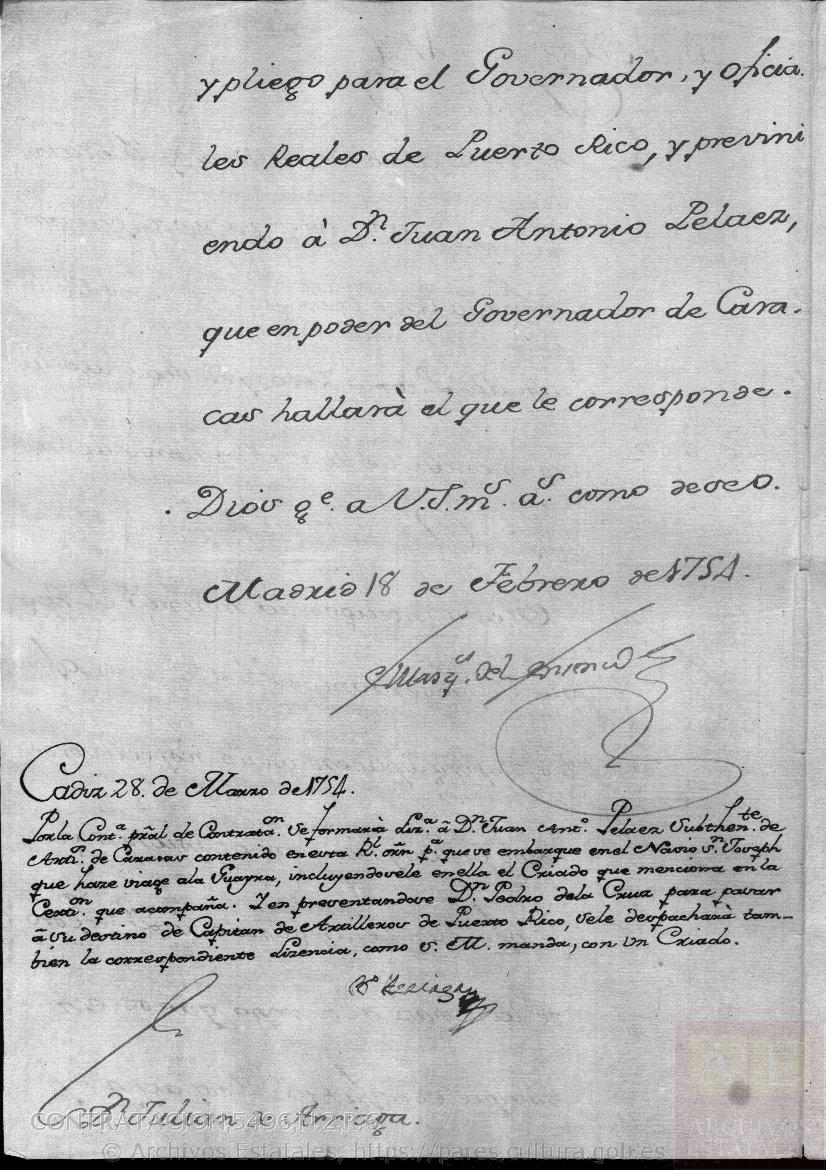 y pliego para el Governador, y oficia.
les Reales de Puerto Rico, y previni
endo à Dn. Juan Antonio Pelaez,
que en poder del Governador de Cara.
cas hallarà el que le corresponde.
Dios ge. a V.S. ms. as. como deseo.
Madrid 18 de Febrero de 1754.
Marqs. del
Cadiz 28. de Marzo de 1754.
Por la Conta. pral de Contraton. se formarà Liza. à Dn. Juan Anto. Pelaez Subthente. de
Arti. de Caracas contenido en esta Rl. orñ pa. que se embarque en el Navio Sn. Joseph
que haze viage ala Guayra, incluyendosele en ella el Criado que menciona en la
Certon. que acompaña. Y en presentandose Dn. Pedro dela Cruz para pasar
à su destino de Capitan de Artilleros de Puerto Rico, sele despacharà tam-
bien la correspondiente Lizencia, como S. M. manda, con un Criado.
Sr. Dn. Julian de Arriaga.
CONTRATACION,5496
© Archivos Estatales, https://pares.cultura.gob.es
AE
ARCHIVOS
ESTATALES